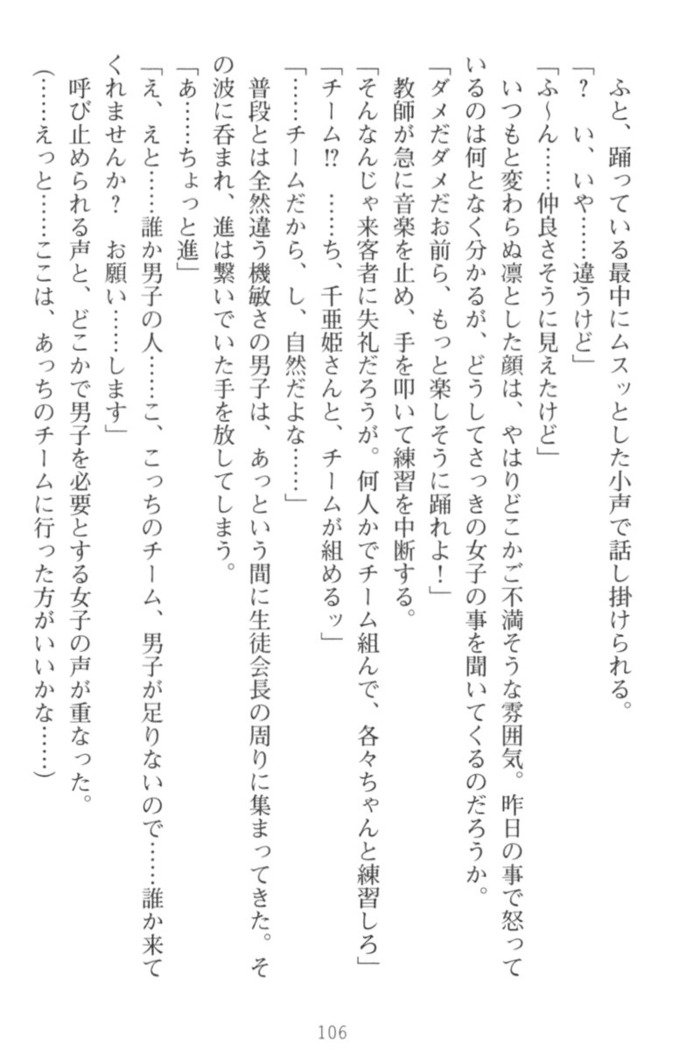 ふと、踊っている最中にムスッとした小声で話し掛けられる。
「？　い、いや……違うけど」
「ふ～ん……仲良さそうに見えたけど」
　いつもと変わらぬ凛とした顔は、やはりどこかご不満そうな雰囲気。昨日の事で怒って
いるのは何となく分かるが、どうしてさっきの女子の事を聞いてくるのだろうか。
「ダメだダメだお前ら、もっと楽しそうに踊れよ！」
　教師が急に音楽を止め、手を叩いて練習を中断する。
「そんなんじゃ来客者に失礼だろうが。何人かでチーム組んで、各々ちゃんと練習しろ」
「チーム!?　……ち、千亜姫さんと、チームが組めるッ」
「……チームだから、し、自然だよな……」
　普段とは全然違う機敏さの男子は、あっという間に生徒会長の周りに集まってきた。そ
の波に呑まれ、進は繋いでいた手を放してしまう。
「あ……ちょっと進」
「え、えと……誰か男子の人……こ、こっちのチーム、男子が足りないので……誰か来て
くれませんか？　お願い……します」
　呼び止められる声と、どこかで男子を必要とする女子の声が重なった。
（……えっと……ここは、あっちのチームに行った方がいいかな……）
106